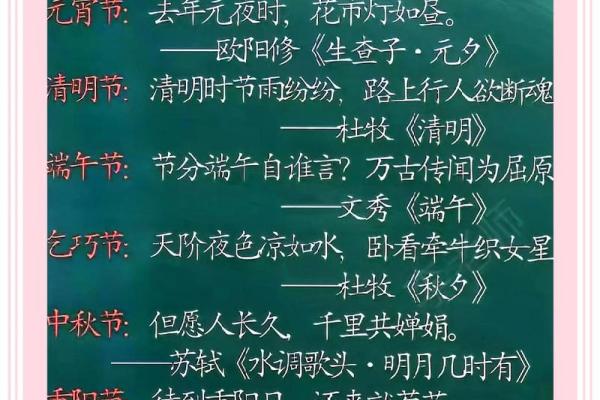 元宵节：去年元夜时，花市灯如昼。
——欧阳修《生查子·元夕》
清明节：清明时节雨纷纷，路上行人欲断魂
——杜牧《清明》
端午节：节分端午自谁言？万古传闻为屈原
——文秀《端午》
乞巧节：天阶夜色凉如水，卧看牵牛织女星
——杜牧《秋夕》
中秋节：但愿人长久，千里共婵娟。
——苏轼《水调歌头·明月几时有》
重阳节：待到重阳日，还来就菊花。